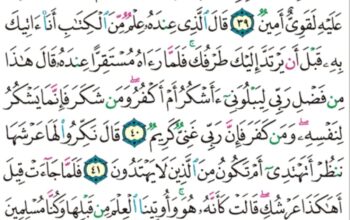 عَلَيْهِ لَقَوِىٌّ أَمِينٌ ٣٩ قَالَ ٱلَّذِى عِندَهُۥ عِلْمٌ مِّنَ ٱلْكِتَٰبِ أَنَا۠ ءَاتِيكَ
بِهِۦ قَبْلَ أَن يَرْتَدَّ إِلَيْكَ طَرْفُكَ ۚ فَلَمَّا رَءَاهُ مُسْتَقِرًّا عِندَهُۥ قَالَ هَٰذَا
مِن فَضْلِ رَبِّى لِيَبْلُوَنِىٓ ءَأَشْكُرُ أَمْ أَكْفُرُ ۖ وَمَن شَكَرَ فَإِنَّمَا يَشْكُرُ
لِنَفْسِهِۦ ۖ وَمَن كَفَرَ فَإِنَّ رَبِّى غَنِىٌّ كَرِيمٌ ٤٠ قَالَ نَكِّرُوا۟ لَهَا عَرْشَهَا
نَنظُرْ أَتَهْتَدِىٓ أَمْ تَكُونُ مِنَ ٱلَّذِينَ لَا يَهْتَدُونَ ٤١ فَلَمَّا جَآءَتْ قِيلَ
أَهَٰكَذَا عَرْشُكِ ۖ قَالَتْ كَأَنَّهُۥ هُوَ ۚ وَأُوتِينَا ٱلْعِلْمَ مِن قَبْلِهَا وَكُنَّا مُسْلِمِينَ